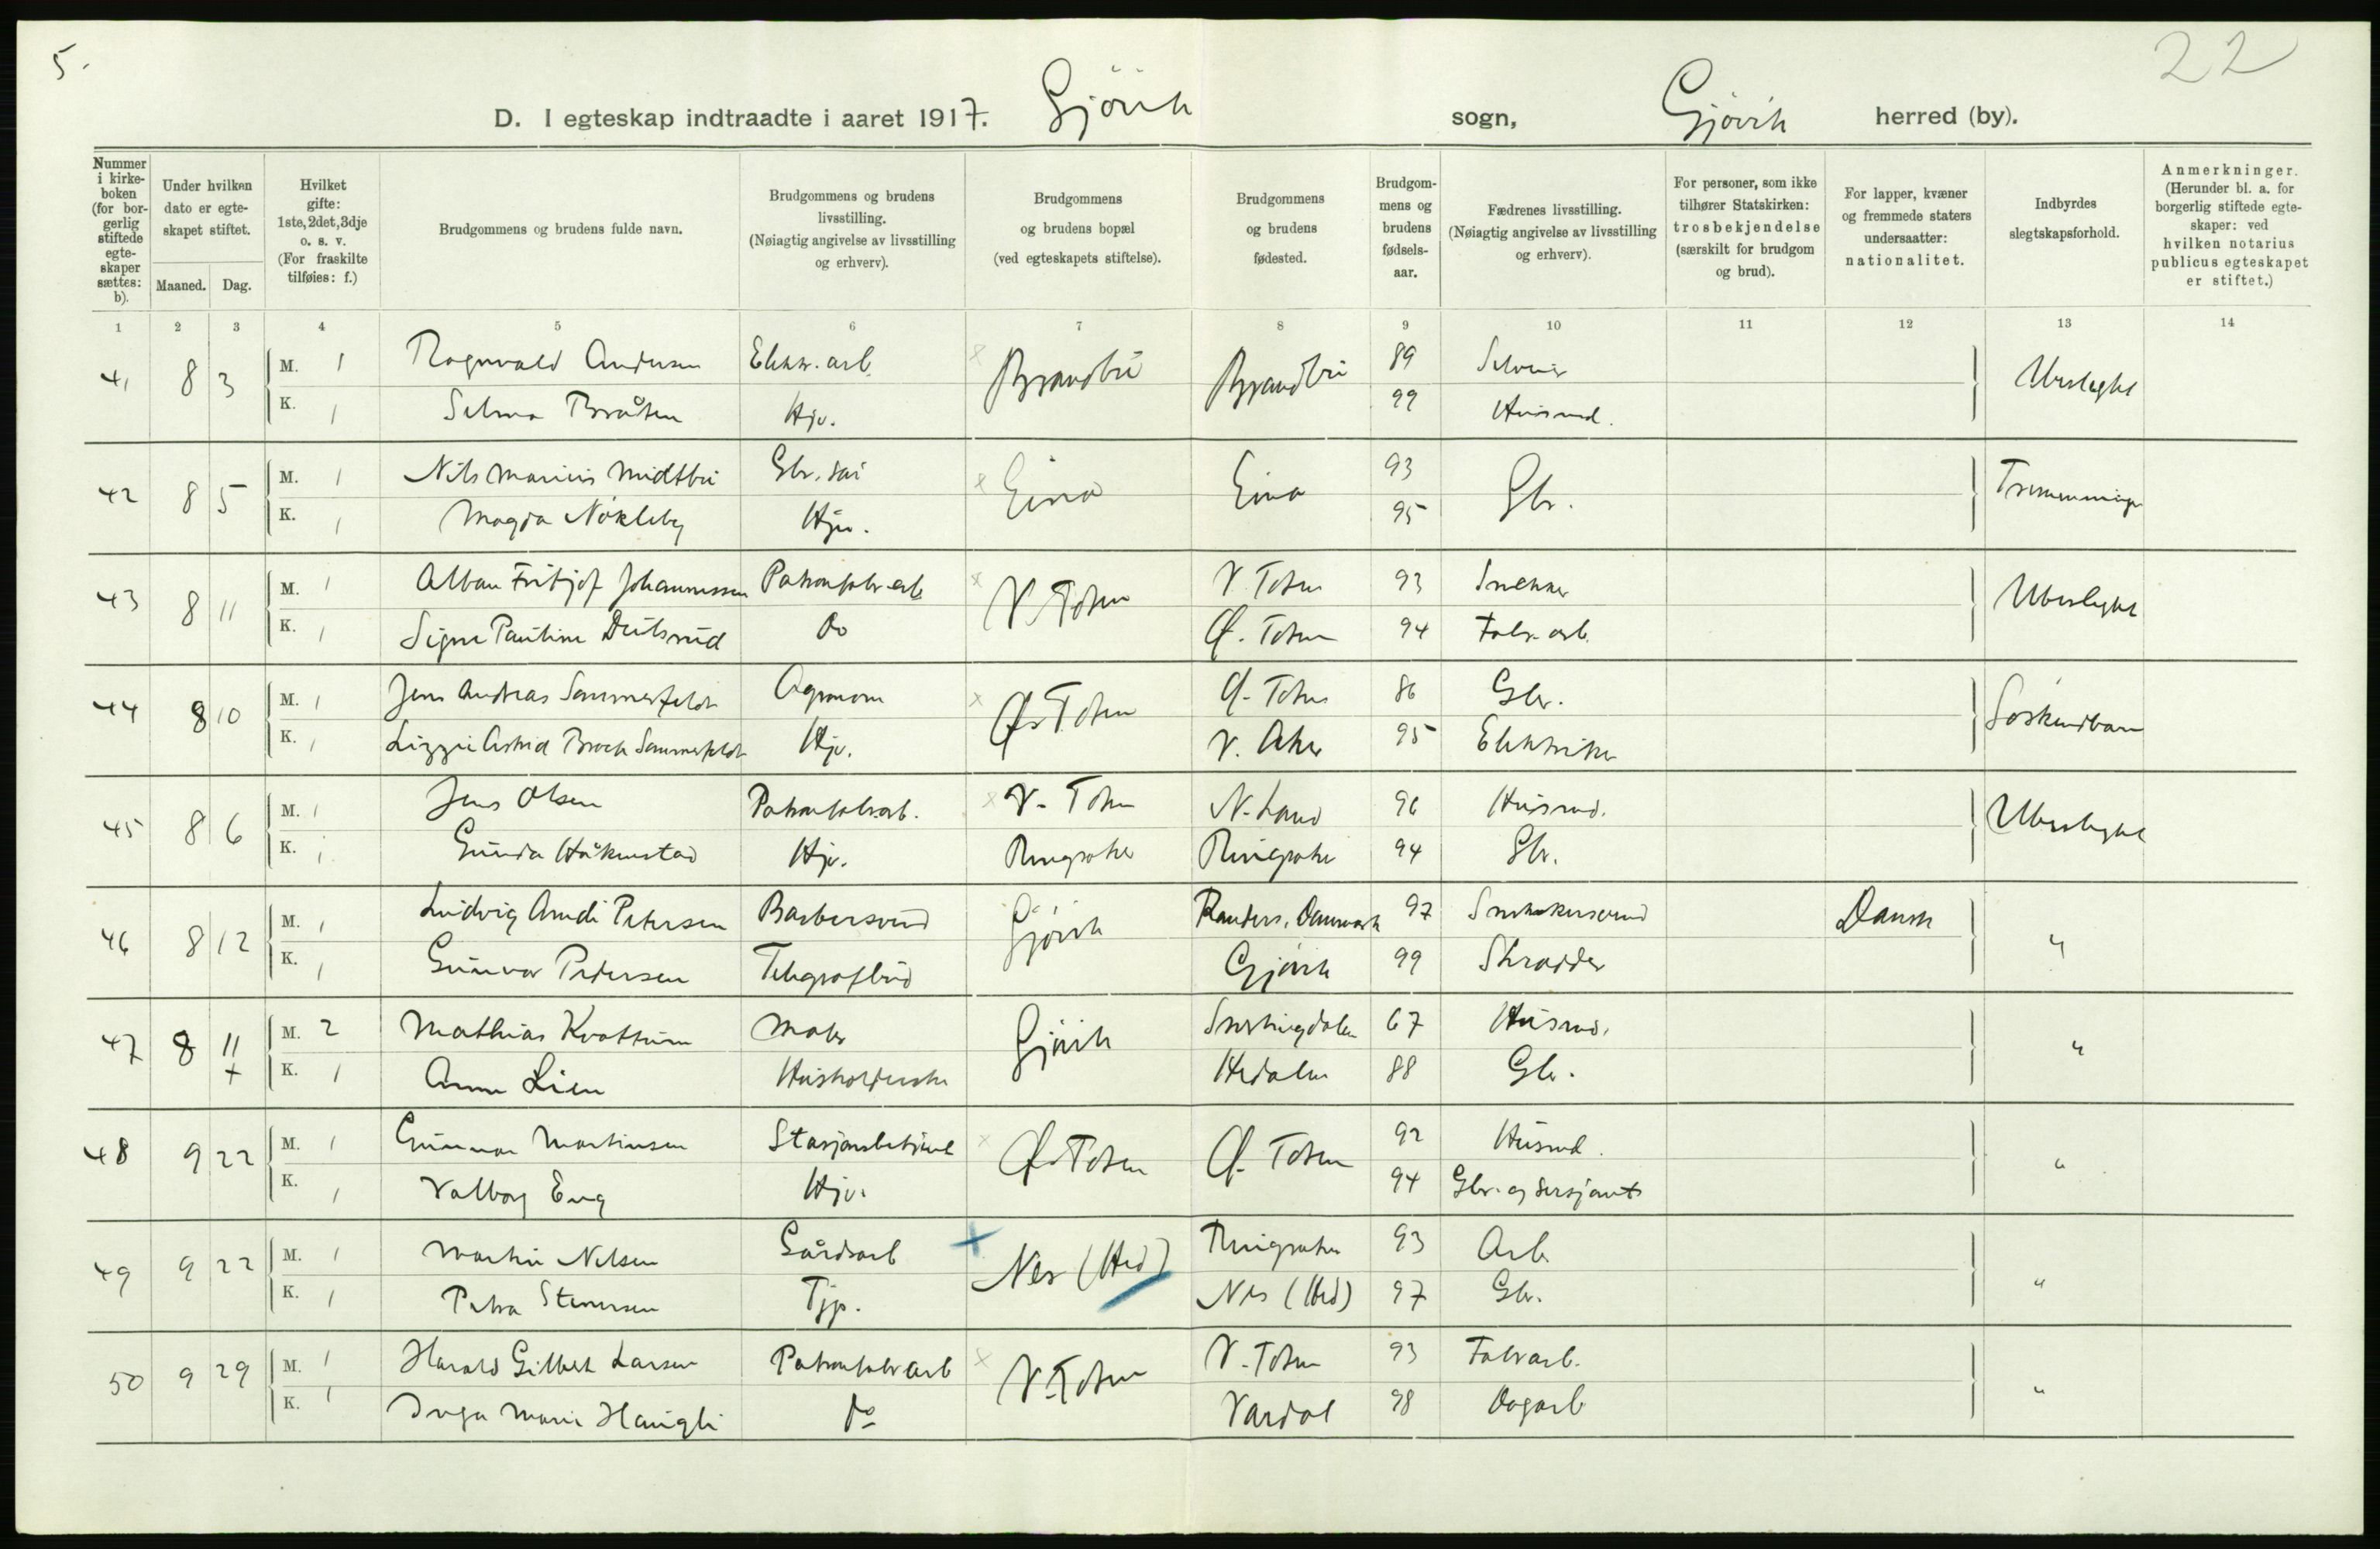 5.
22
D. I egteskap indtraadte i aaret 1917. Gjövik sogn, Gjövik herred (by).
Nummer i kirkeboken (for borgerlig stiftede egteskaper sættes: b).
Under hvilken dato er egteskapet stiftet.
Maaned. Dag.
Hvilket gifte: 1ste, 2det, 3dje o. s. v. (For fraskilte tilføies: f.)
Brudgommens og brudens fulde navn.
Brudgommens og brudens livsstilling. (Nøiagtig angivelse av livsstilling og erhverv).
Brudgommens og brudens bopæl (ved egteskapets stiftelse).
Brudgommens og brudens fødested.
Brudgommens og brudens fødselsaar.
Fædrenes livsstilling. (Nøiagtig angivelse av livsstilling og erhverv).
For personer, som ikke tilhører Statskirken: trosbekjendelse (særskilt for brudgom og brud).
For lapper, kvæner og fremmede staters undersaatter: nationalitet.
Indbyrdes slegtskapsforhold.
Anmerkninger. (Herunder bl. a. for borgerlig stiftede egteskaper: ved hvilken notarius publicus egteskapet er stiftet.)
1 2 3 4 5 6 7 8 9 10 11 12 13 14
41 8 3 M. 1 Ragnvald Andersen Elektr. arb. Brandbu Brandbu 89 Ubeslegtet
K. 1 Selma Bråten Hjv. 99 Husmd.
42 8 5 M. 1 Nils Marius Midtbu Gbr. søn Eina Eina 93 Gbr. Tremenninger
K. 1 Magda Nökleby Hjv. 95
43 8 11 M. 1 Alban Fritjof Johannessen Patronfabr. arb V. Toten V. Toten 93 Snekker Ubeslegtet
K. 1 Signe Pauline Deilsrud do Ø. Toten 94 Fabr. arb.
44 8 10 M. 1 Jens Andreas Sommerfeldt Agronom Ø. Toten Ø. Toten 86 Gbr. Söskendbarn
K. 1 Lizzie Astrid Broch Sommerfeldt Hjv. V. Aker 95 Elektriker
45 8 6 M. 1 Jens Olsen Patronfabr. arb. V. Toten N. Land 96 Husmd. Ubeslegtet
K. 1 Gunda Håkenstad Hjv. Ringsaker Ringsaker 94 Gbr.
46 8 12 M. 1 Ludvig Arndi Petersen Barbersvend Gjövik Randers, Danmark 97 Snekkersvend Dansk "
K. 1 Gunvor Pedersen Telegrafbud Gjövik 99 Skrædder
47 8 11 M. 2 Mathias Kvattum Maler Gjövik Snertingdalen 67 Husmd. "
+ K. 1 Anne Lien Husholderske Hedalen 88 Gbr.
48 9 22 M. 1 Gunnar Martinsen Stasjonsbetjent Ø. Toten Ø. Toten 92 Husmd. "
K. 1 Valborg Eng Hjv. 94 Gbr. og sersjant
49 9 22 M. 1 Martin Nilsen Gårdsarb Nes (Hed) Ringsaker 93 Arb. "
K. 1 Petra Stenersen Tjp. Nes (Hed) 97 Gbr.
50 9 29 M. 1 Harald Gilbert Larsen Patronfabr arb V. Toten V. Toten 93 Fabr arb. "
K. 1 Inga Marie Haugli do Vardal 98 Dagarb